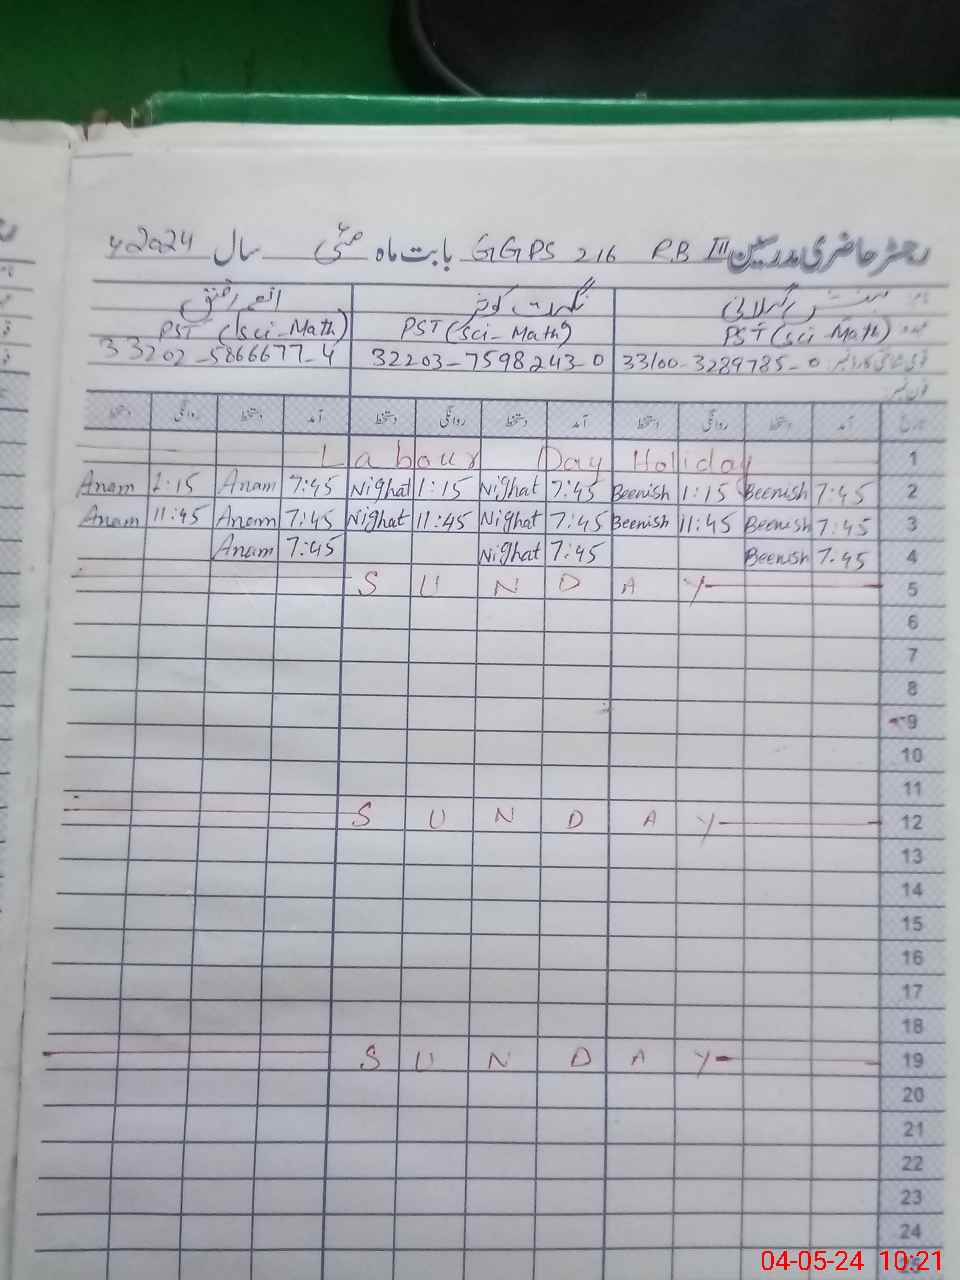 رجسٹر حاضری مدرسین GGPS 216 RB III بابت ماہ مئی سال 2024ء
نگہت کوثر
PST (Sci-Math) PST (Sci-Math) PST (Sci-Math)
33100-3289785-0 32203-7598243-0 33202-5866677-4
آمد دستخط روانگی دستخط آمد دستخط روانگی دستخط آمد دستخط روانگی دستخط
Labour Day Holiday 1
Anam 1:15 Anam 7:45 Nighat 1:15 Nighat 7:45 Beenish 1:15 Beenish 7:45 2
Anam 11:45 Anam 7:45 Nighat 11:45 Nighat 7:45 Beenish 11:45 Beenish 7:45 3
Anam 7:45 Nighat 7:45 Beenish 7.45 4
S U N D A Y 5
6
7
8
9
10
11
S U N D A Y 12
13
14
15
16
17
18
S U N D A Y 19
20
21
22
23
24
25
04-05-24 10:21